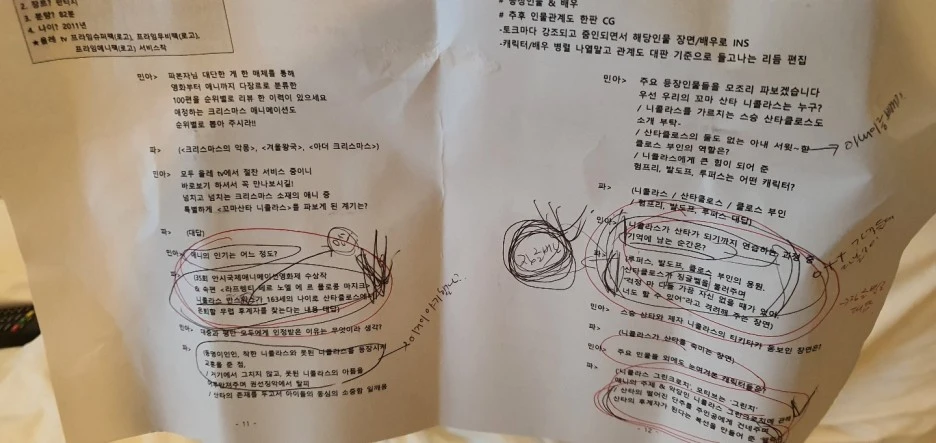 2. 장르? 판타지
3. 분량? 82분
4. 나이? 2011년
★올레 tv 프라임슈퍼팩(로고), 프라임무비팩(로고),
프라임애니팩(로고) 서비스작
민아> 파본자님 대단한 게 한 매체를 통해
영화부터 애니까지 다장르로 분류한
100편을 순위별로 리뷰 한 이력이 있으세요
애정하는 크리스마스 애니메이션도
순위별로 뽑아 주시라!!
파> (<크리스마스의 악몽>, <겨울왕국>, <아더 크리스마스>)
민아> 모두 올레 tv에서 절찬 서비스 중이니
바로보기 하셔서 꼭 만나보시길!
넘치고 넘치는 크리스마스 소재의 애니 중
특별하게 <꼬마산타 니콜라스>를 파보게 된 계기는?
파> (대답)
민아> 애니의 인기는 어느 정도?
파> (35회 안시국제애니메이션영화제 수상작
니콜라스 가 163세의 나이로 산타클로스에서
은퇴할 무렵 후계자를 찾는다는 내용 대답)
민아> 대중과 평단 모두에게 인정받은 이유는 무엇이라 생각?
파> 착한 니콜라스와 못된 니콜라스를 등장시켜
교훈을 준 점,
/ 거기에서 그치지 않고, 못된 니콜라스의 아픔을
권선징악에서 탈피
/ 산타의 존재를 두고서 아이들의 동심의 소중함 일깨움
- 11 -
# 등장인물 & 배우
# 추후 인물관계도 한판 CG
-토크마다 강조되고 줌인되면서 해당인물 장면/배우로 INS
-캐릭터/배우 병렬 나열말고 관계도 대판 기준으로 들고나는 리듬 편집
민아> 주요 등장인물들을 모조리 파보겠습니다
우선 우리의 꼬마 산타 니콜라스는 누구?
/ 니콜라스를 가르치는 스승 산타클로스도
소개 부탁~
/ 산타클로스의 둘도 없는 아내 서윗~한
클로스 부인의 역할은?
/ 니콜라스에게 큰 힘이 되어 준
험프리, 발도프, 루퍼스는 어떤 캐릭터?
파> (니콜라스 / 산타클로스 / 클로스 부인
/ 험프리, 발도프, 루퍼스 대답)
민아> 니콜라스가 산타가 되기까지 연습하는 과정 중
기억에 남는 순간은?
파> (루퍼스, 발도프, 클로스 부인의 응원,
산타클로스가 징글벨을 불러주며
"걱정 마 다들 가끔 자신 없을 때가 있어,
너도 할 수 있어"라고 격려해 주는 장면)
민아> 스승 산타와 제자 니콜라스의 티키타카 돋보인 장면은?
파> (니콜라스가 산타를 죽이는 장면)
민아> 주요 인물들 외에도 눈여겨본 캐릭터들은?
파> (니콜라스 그린크로치, 모티브는 '그린치'
/ 산타의 떨어진 단추를 주인공에게 건네주며
산타의 후계자가 된다는 복선을 만들어 준
- 12 -